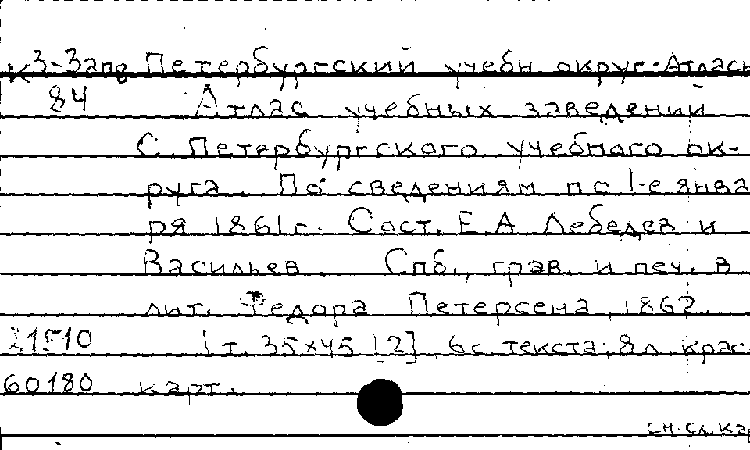 К3-Зап8 Петербургский учебн. округ-Атласы
84 Атлас учебных заведений
С. Петербургского учебного ок-
руга. По сведениям по 1-е янва
ря 1861г. Сост. Е.А. Лебедев и
Васильев. Спб., грав. и печ. в
лит. Федора Петерсена, 1862.
21510 1 т. 35х45 [2], 6с. текста; 8л. крас.
60180 карт.
см. сл. кар